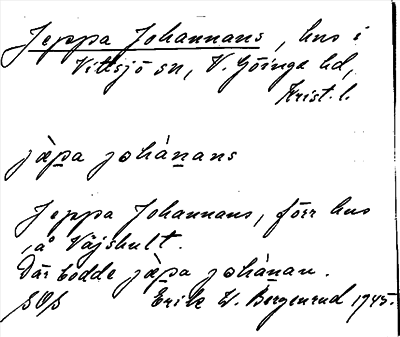 Jeppa Johannans, hus i
Vittsjö sn, V. Göinge hd,
Krist. l.
jàpa johànans
Jeppa Johannans, förr hus
på Väjshult.
Där bodde jàpa johànan.
Erik W. Bergenrud 1945.